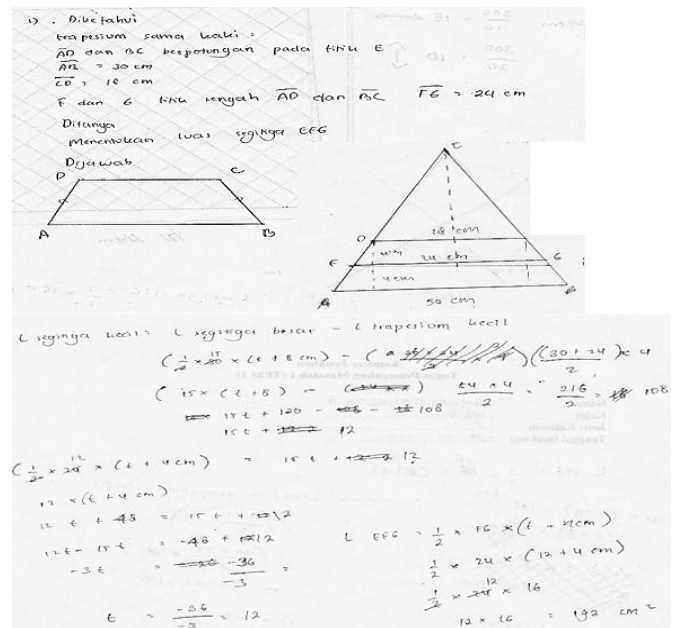 1) . Diketahui
trapesium sama kaki :
AD dan BC berpotongan pada titik E
AB = 30 cm
CD = 18 cm
F dan G titik tengah AD dan BC FG = 24 cm
Ditanya
Menentukan luas segitiga EFG
Dijawab
D C
A B
E
D 18 cm
4 cm
F 24 cm G
4 cm
A 30 cm B
L segitiga kecil = L segitiga besar - L trapesium kecil
(1/2 × 30 15 × (t + 8 cm) - ((30 + 24) × 4 / 2
(15 × (t + 8) - 54 × 4 / 2 = 216 / 2 = 108
15 t + 120 - 108
15 t + 12
(1/2 × 24 12 × (t + 4 cm) = 15 t + 12
12 × (t + 4 cm)
12 t + 48 = 15 t + 12
12t - 15 t = -48 + 12
-3 t = -36 / -3 =
t = -36 / -3 = 12
L EFG = 1/2 × FG × (t + 4cm)
1/2 × 24 × (12 + 4 cm)
1/2 × 24 12 × 16
12 × 16 = 192 cm²